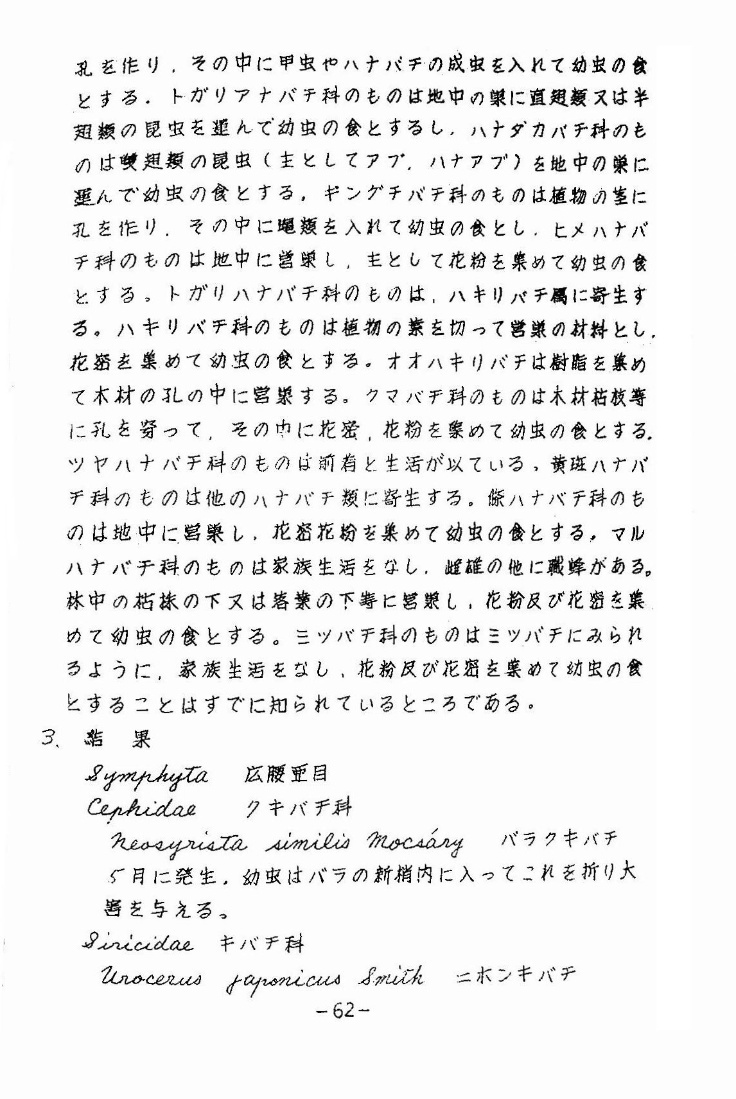 孔を作り、その中に甲虫やハナバチの成虫を入れて幼虫の食
とする。トガリアナバチ科のものは地中の巣に直翅類又は半
翅類の昆虫を運んで幼虫の食とするし、ハナダカバチ科のも
のは雙翅類の昆虫(主としてアブ、ハナアブ)を地中の巣に
運んで幼虫の食とする。ギングチバチ科のものは植物の茎に
孔を作り、その中に蠅類を入れて幼虫の食とし、ヒメハナバ
チ科のものは地中に営巣し、主として花粉を集めて幼虫の食
とする。トガリハナバチ科のものは、ハキリバチ属に寄生す
る。ハキリバチ科のものは植物の葉を切って営巣の材料とし、
花密を集めて幼虫の食とする。オオハキリバチは樹脂を集め
て木材の孔の中に営巣する。クマバチ科のものは木材枯枝等
に孔を穿って、その中に花密、花粉を集めて幼虫の食とする。
ツヤハナバチ科のものは前者と生活が以ている。黄斑ハナバ
チ科のものは他のハナバチ類に寄生する。條ハナバチ科のも
のは地中に営巣し、花密花粉を集めて幼虫の食とする。マル
ハナバチ科のものは家族生活をなし、雌雄の他に職蜂がある。
林中の枯株の下又は落葉の下等に営巣し、花粉及び花密を集
めて幼虫の食とする。ミツバチ科のものはミツバチにみられ
るように、家族生活をなし、花粉及び花密を集めて幼虫の食
とすることはすでに知られているところである。
3. 結 果
Symphyta 広腰亜目
Cephidae クキバチ科
Neosyrista similis Mocsáry バラクキバチ
5月に発生、幼虫はバラの新梢内に入ってこれを折り大
害を与える。
Siricidae キバチ科
Urocerus japonicus Smith ニホンキバチ
-62-